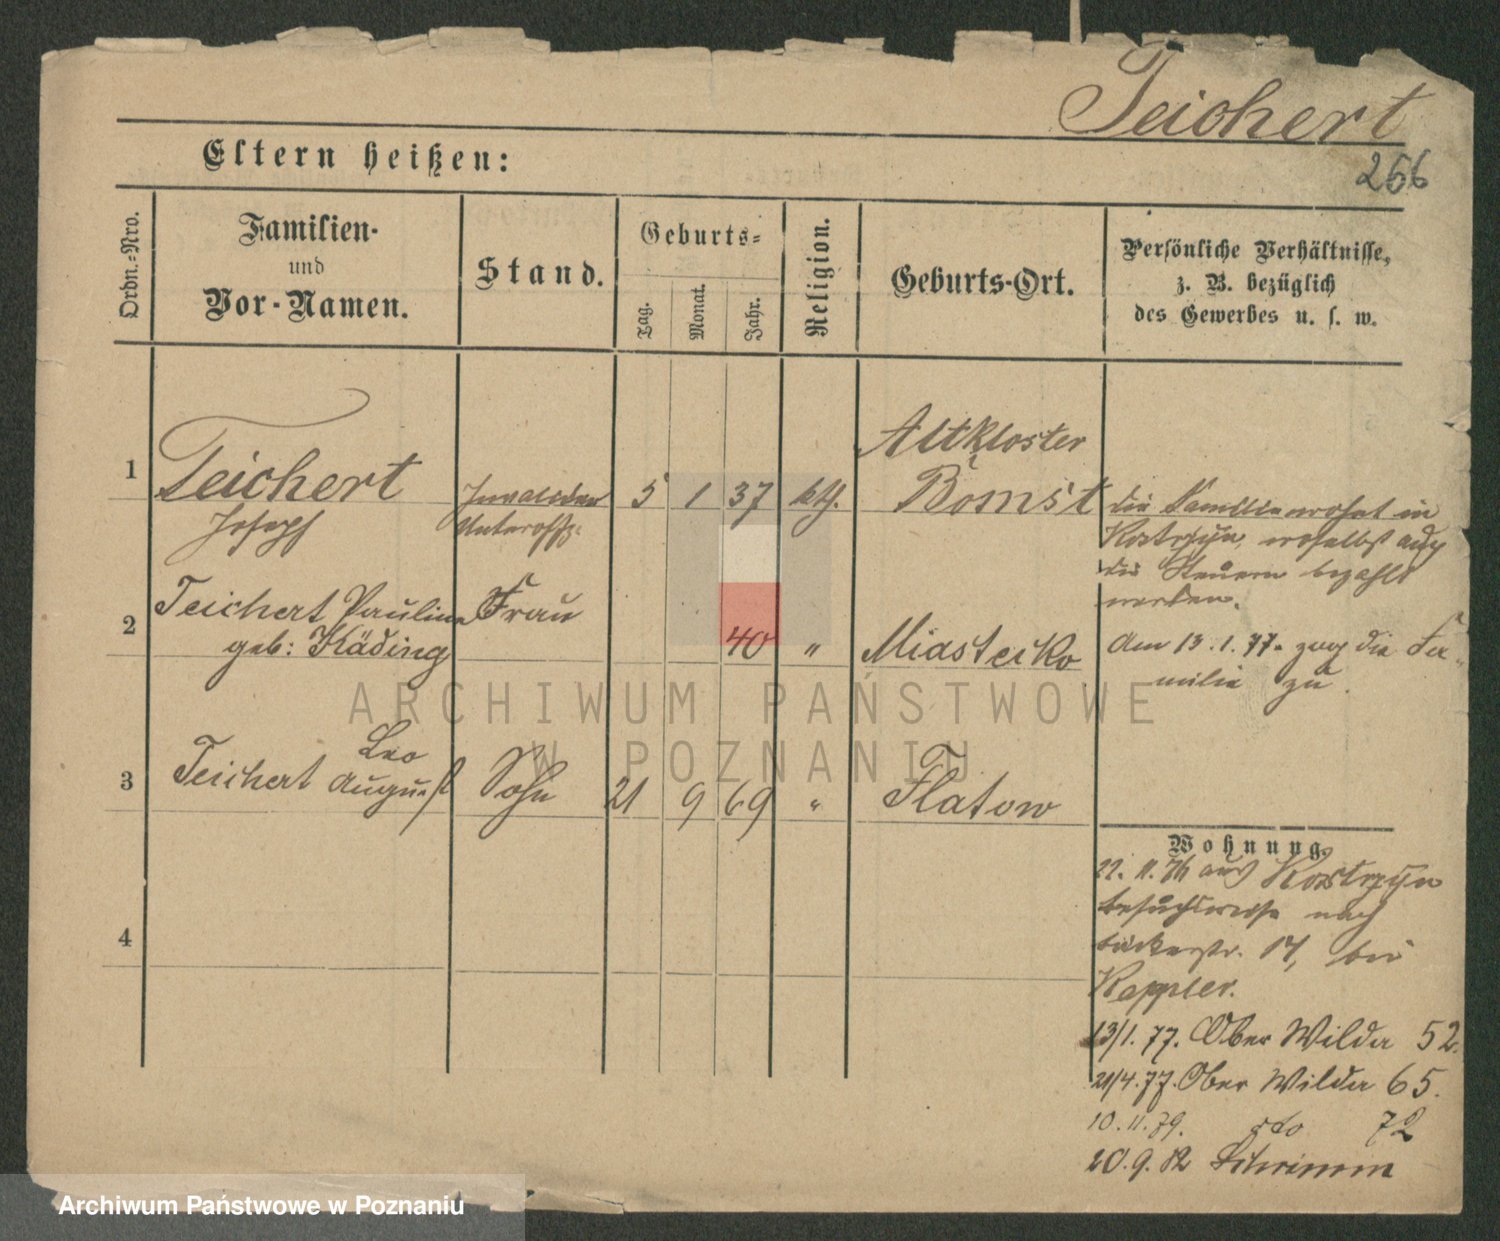 Teichert
Eltern heißen:
266
Ordn.-Nro.
Familien-
und
Vor-Namen.
Stand.
Geburts-
Tag.
Monat.
Jahr.
Religion.
Geburts-Ort.
Persönliche Verhältnisse,
z. B. bezüglich
des Gewerbes u. s. w.
1 Teichert Joseph
Invaliden
Unteroffz.
5 1 37 kth.
Altkloster
Bomst
die Familie wohnt in
Kostrzyn, woselbst auch
die Steuern bezahlt
werden.
2 Teichert Pauline
geb: Käding
Frau
40 "
Miasteiko
Am 13.1.77. zog die Fa-
milie zu.
3 Teichert Leo
August
Sohn 21 9 69 " Flatow
4
Wohnung.
22.11.76 aus Kostrzyn
besuchsweise nach
Bäckerstr. 17, bei
Keppler.
13/1.77. Ober Wilda 52.
21/4.77. Ober Wilda 65.
10.11.79. dto 72
20.9.82 Schrimm
ARCHIWUM PAŃSTWOWE
W POZNANIU
Archiwum Państwowe w Poznaniu